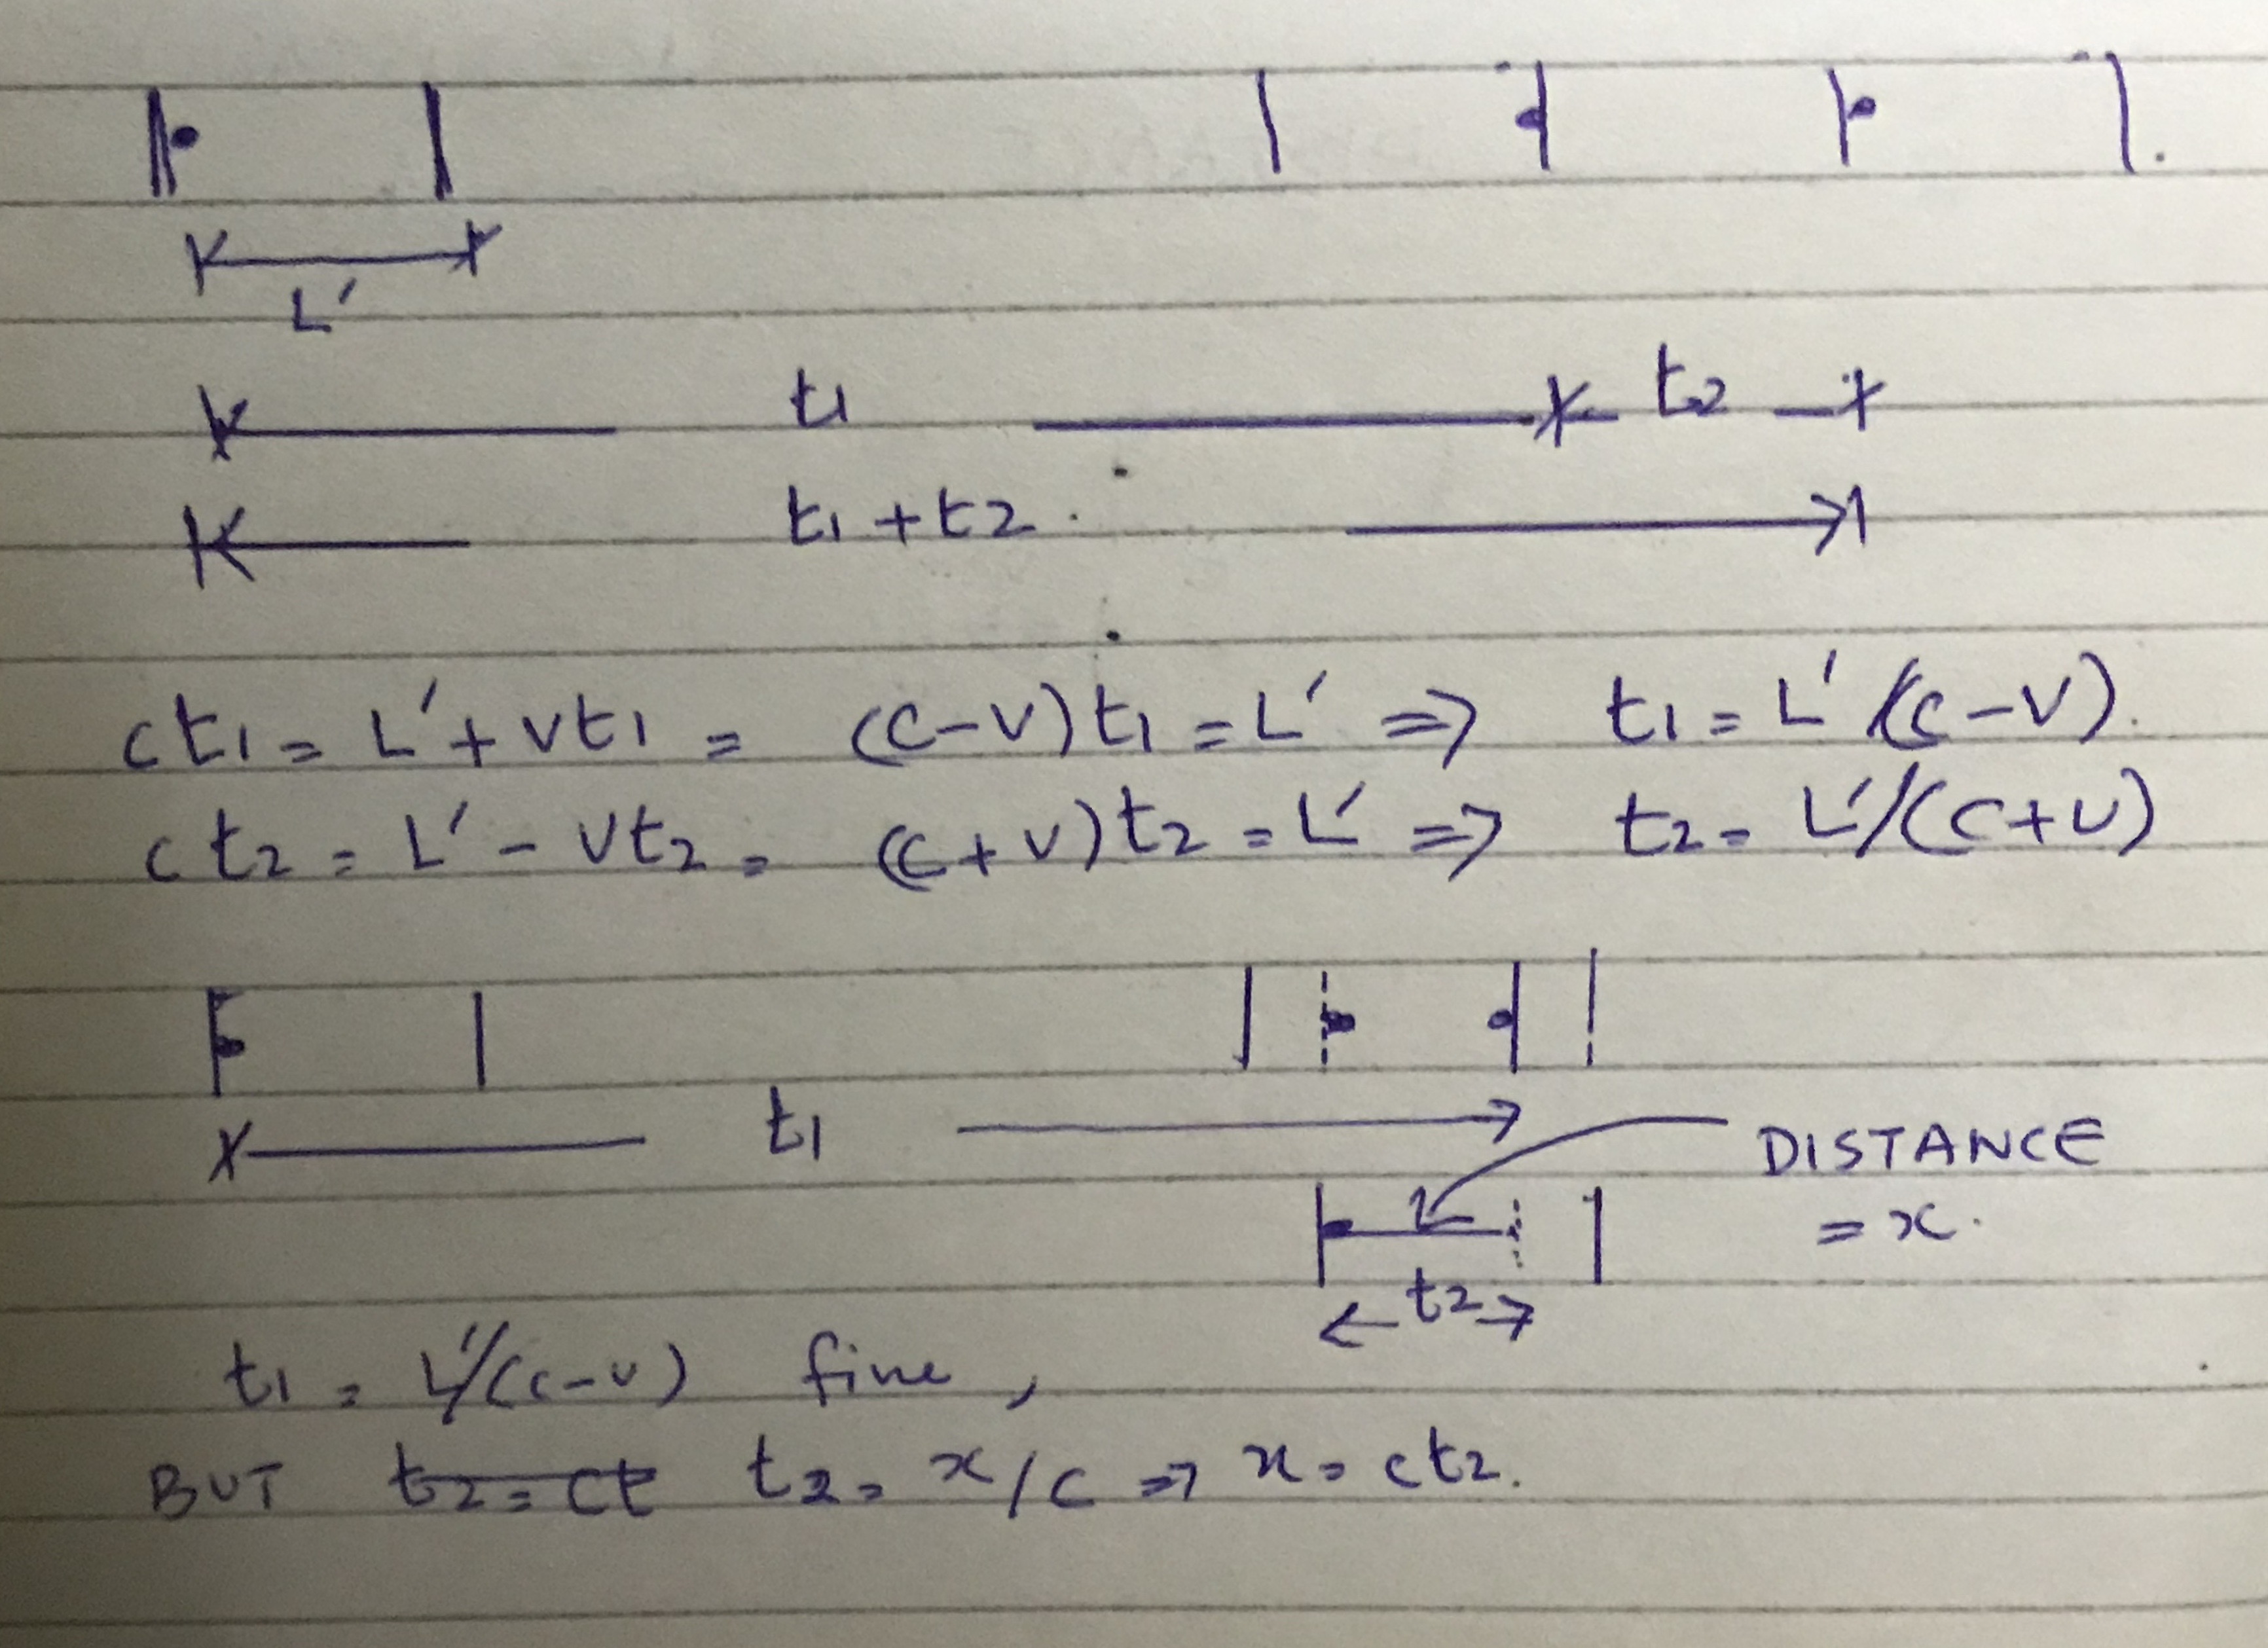 L′
t1 t2
t1 + t2
ct1 = L′ + vt1 = (c-v)t1 = L′ ⇒ t1 = L′/(c-v).
ct2 = L′ - vt2 = (c+v)t2 = L′ ⇒ t2 = L′/(c+v)
t1
DISTANCE
= x.
t2
t1 = L′/(c-v) fine,
BUT t2 = ct t2 = x/c ⇒ x = ct2.